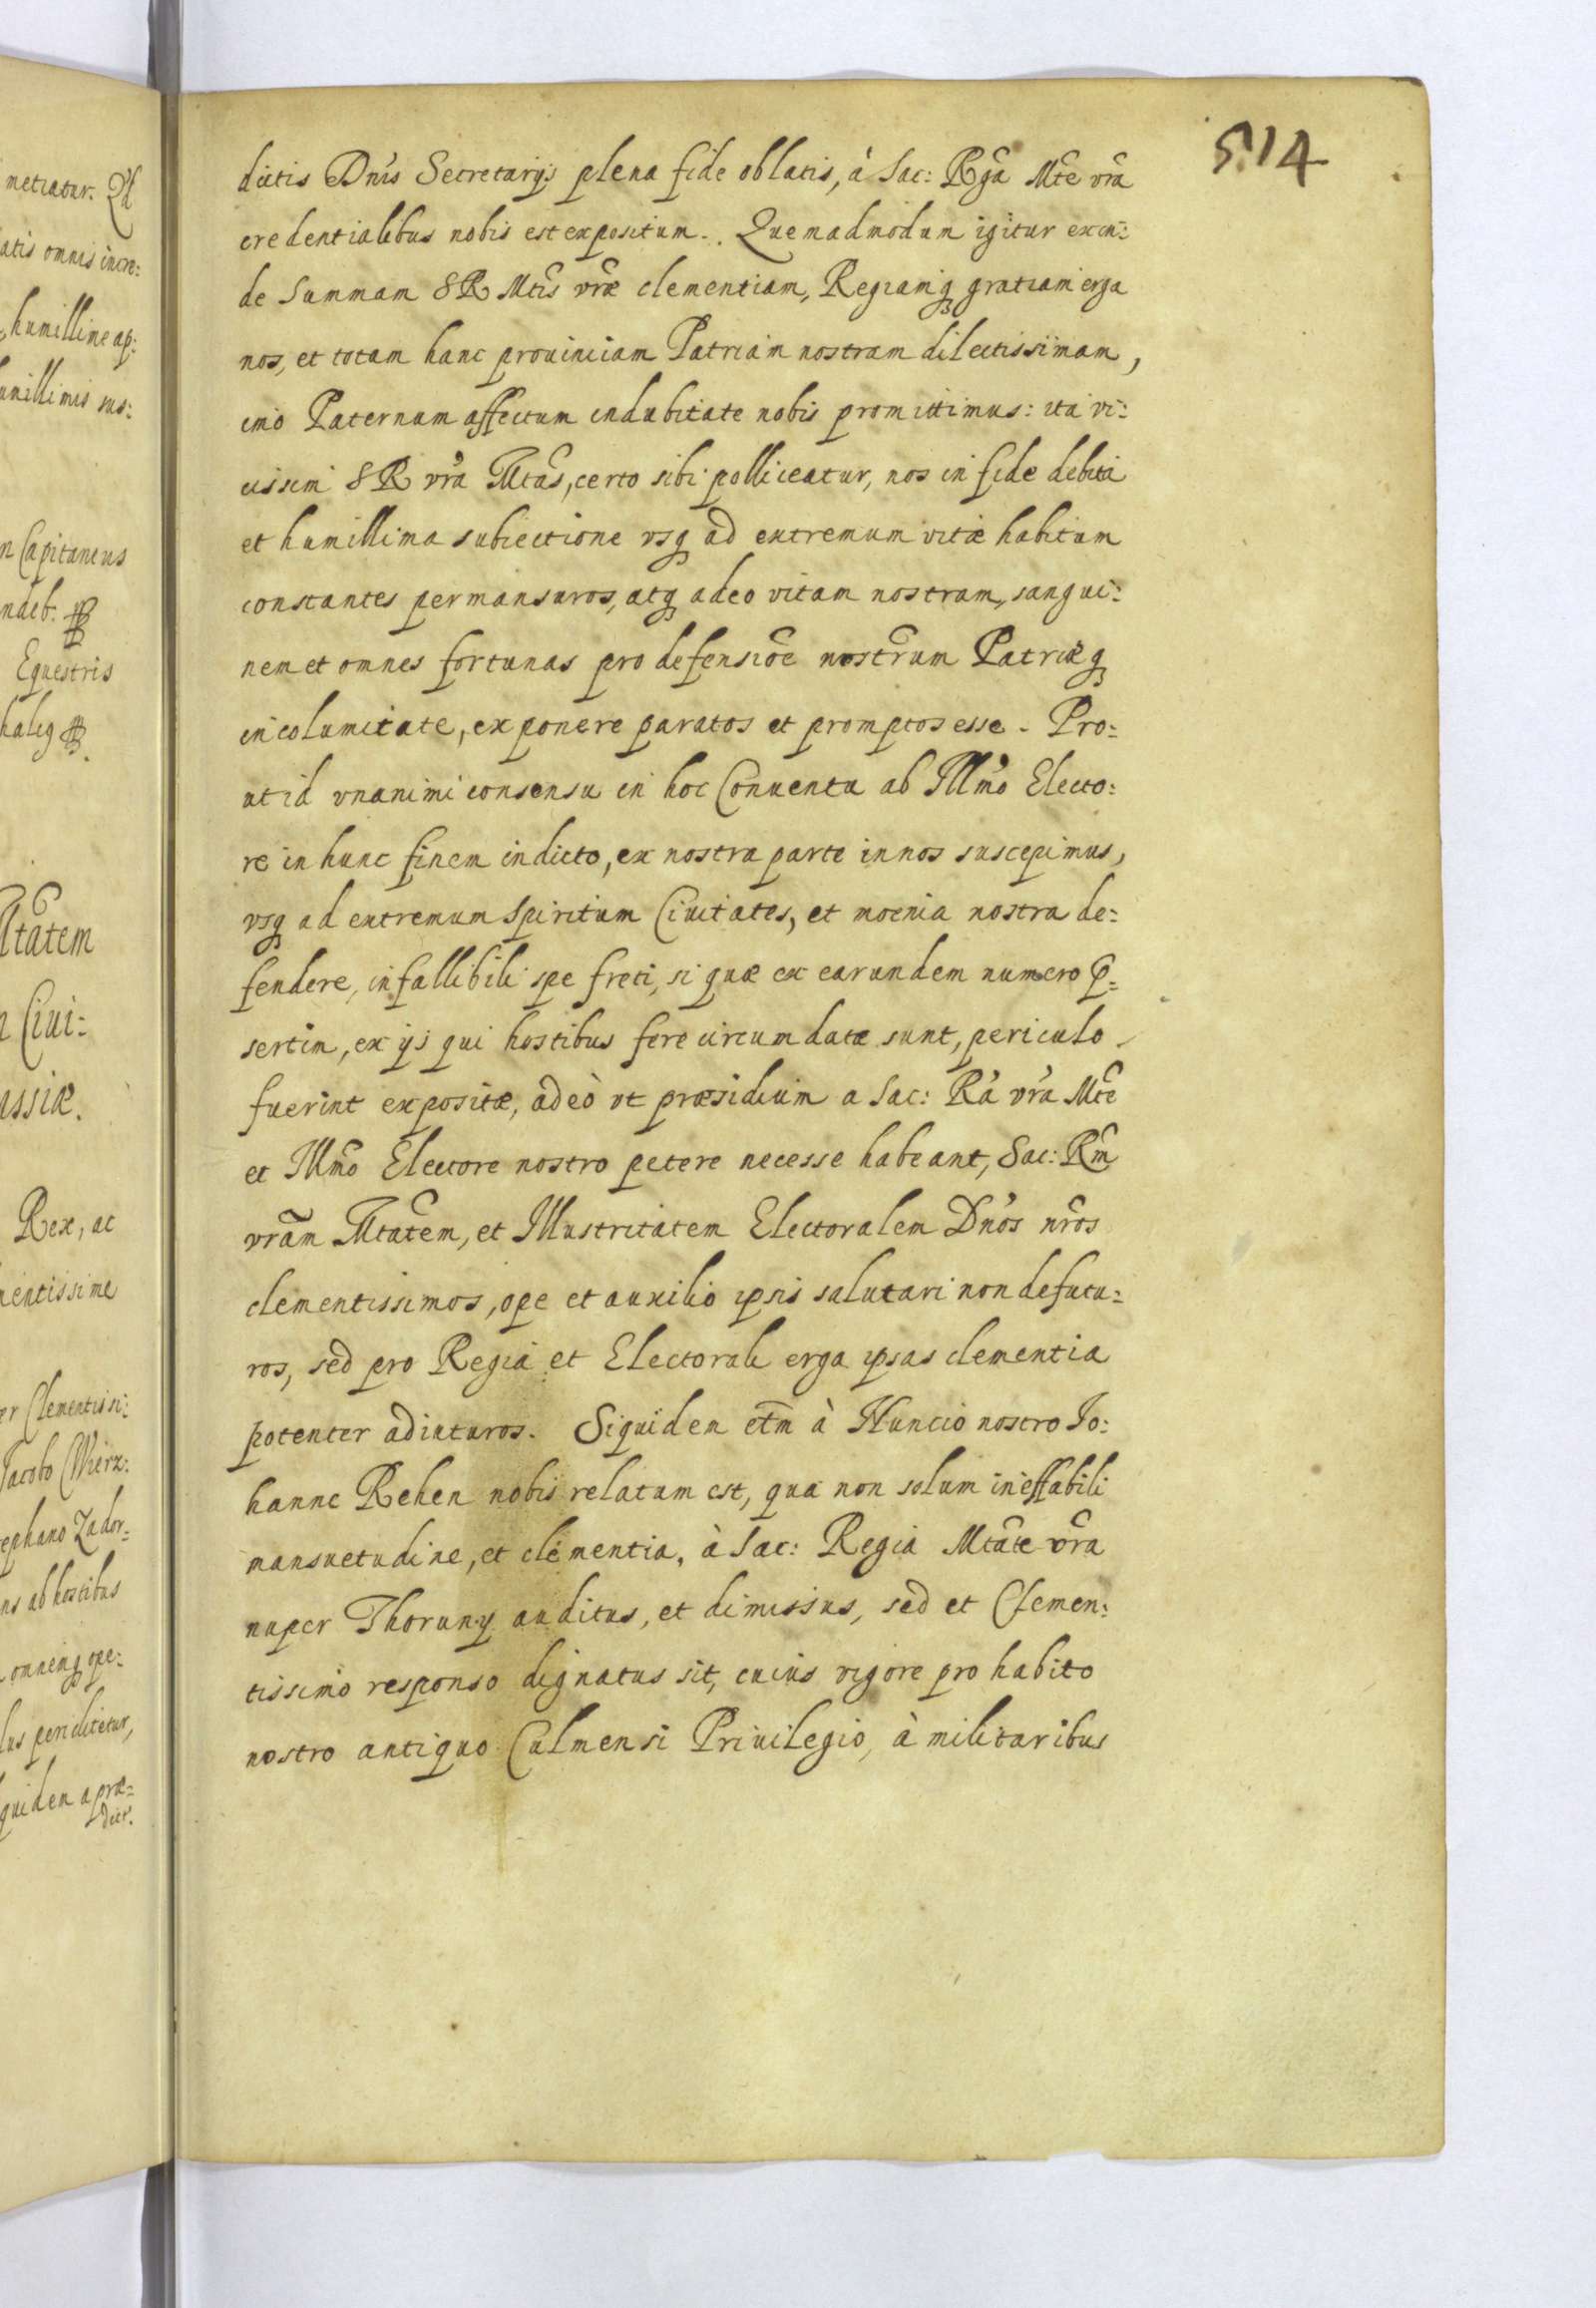 514
dictis Dnis Secretarijs plena fide oblatis, à Sac: Rga Mte vra
credentialibus nobis est expositum. Quemadmodum igitur exin:
de summam S R Mtis vræ clementiam, Regiamq gratiam erga
nos, et totam hanc prouinciam Patriam nostram dilectissimam,
imò Paternum affectum indubitate nobis promittimus: ita vi:
cissim S R vra Mtas, certo sibi polliceatur, nos in fide debita
et humillima subiectione vsq ad extremum vitæ habitum
constantes permansuros, atq adeo vitam nostram, sangui:
nem et omnes fortunas pro defensioe nostrum Patriæq
incolumitate, exponere paratos et promptos esse. Pro:
ut id vnanimi consensu in hoc Conuentu ab Illmo Electo:
re in hunc finem indicto, ex nostra parte in nos suscepimus,
vsq ad extremum spiritum Ciuitates, et moenia nostra de:
fendere, infallibili spe freti, si quæ ex earundem numero p:
sertim, ex ijs qui hostibus fere circumdatæ sunt, periculo
fuerint expositæ, adeò vt præsidium a Sac: Ra vra Mte
et Illmo Electore nostro petere necesse habeant, Sac: Rm
vram Mtatem, et Illustritatem Electoralem Dnos nros
clementissimos, ope et auxilio ipsis salutari non defutu:
ros, sed pro Regia et Electorali erga ipsas clementia
potenter adiuturos. Siquidem etm à Nuncio nostro Jo:
hanne Rehen nobis relatum est, qua non solum ineffabili
mansuetudine, et clementia, à Sac: Regia Mtate vra
nuper Thoruny auditus, et dimissus, sed et Clemen:
tissimo responso dignatus sit, cuius vigore pro habito
nostro antiquo Culmensi Priuilegio, à militaribus
netiatur. Qd
atis omnis incre:
humillime ap:
umillimis sus:
n Capitaneus
ndeb:
Equestris
haleg
Mtatem
n Ciui:
ussiæ.
Rex, ac
mentissime
er Clementissi:
Jacobo Wierz:
tephano Zador:
ns ab hostibus
omnemq ope:
lus periclitetur,
quidem a præ:
dict.